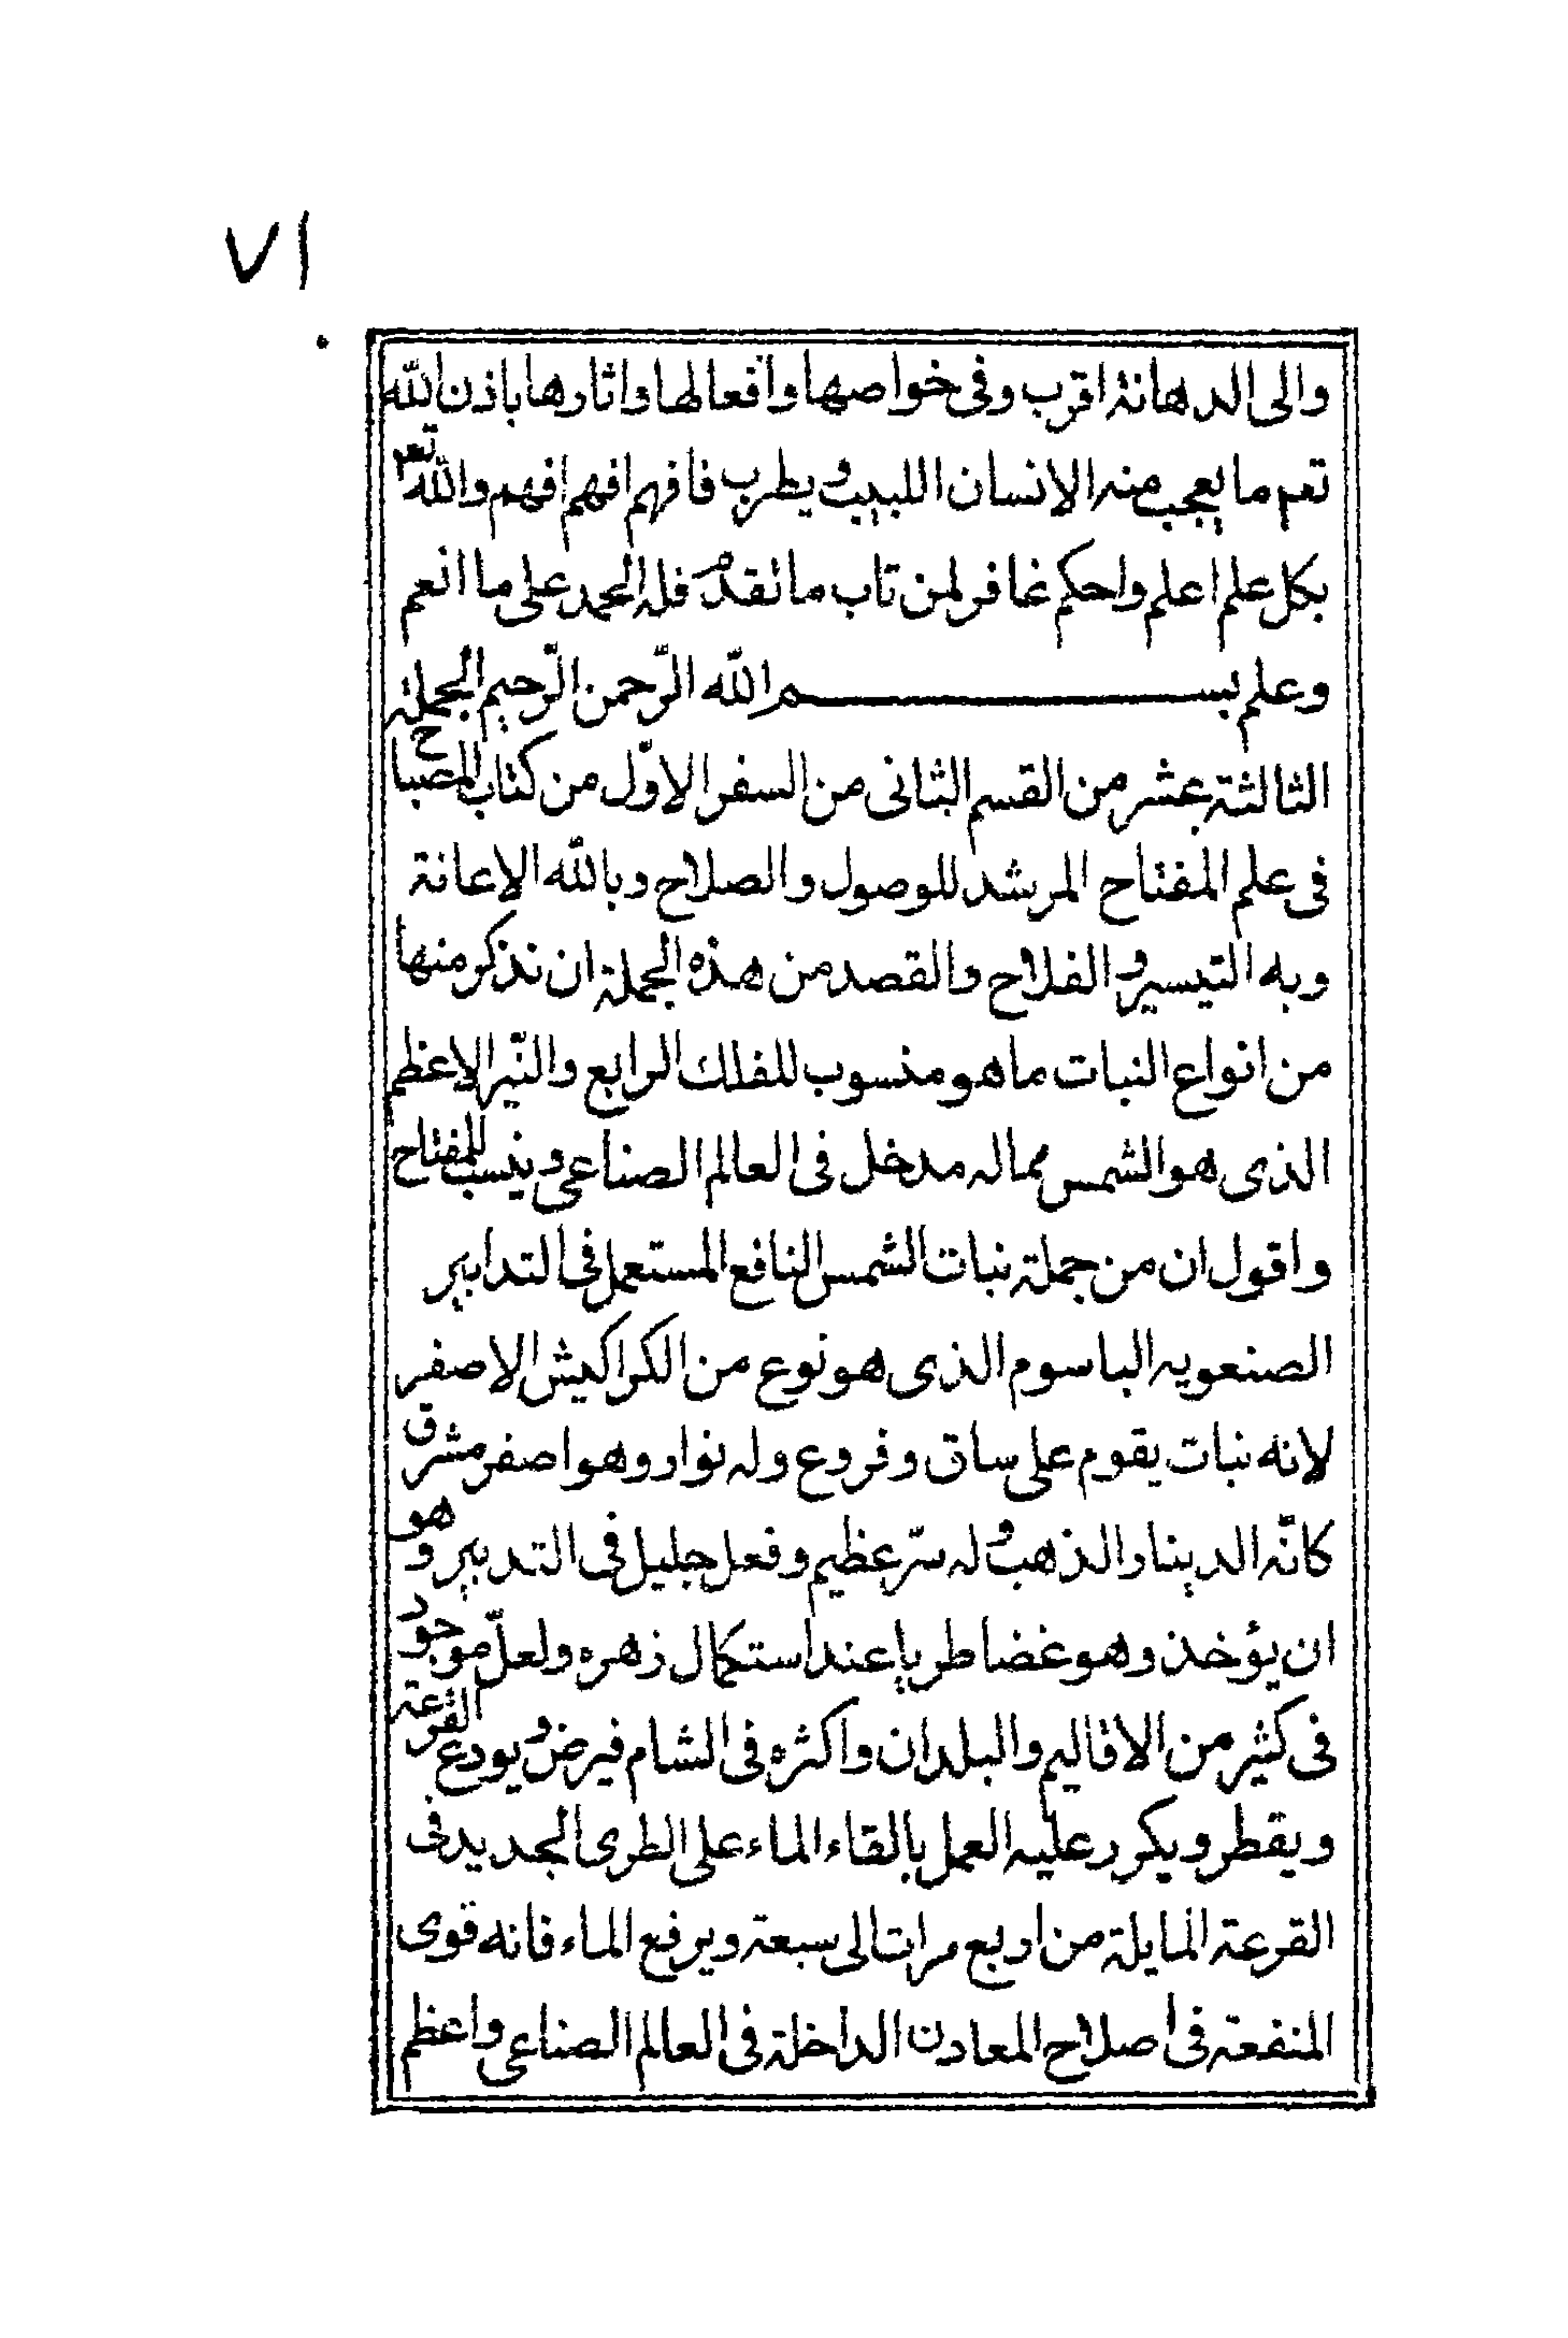 ٧١
والى الدهانة اقرب وفى خواصها وافعالها واثارها باذن الله
تعم ما يعجب منه الانسان اللبيب ويطرب فافهم افهم افهم والله تعم
بكل علم اعلم واحكم غافر لمن تاب ما تقدّم فله الحمد على ما انعم
وعلم بسم الله الرّحمن الرّحيم الجملة
الثالثة عشر من القسم الثانى من السفر الاوّل من كتاب المصباح
فى علم المفتاح المرشد للوصول والصلاح وبالله الاعانة
وبه التيسير والفلاح والقصد من هذه الجملة ان نذكر منها
من انواع النبات ما هو منسوب للفلك الرابع والنّير الاعظم
الذى هو الشمس مما له مدخل فى العالم الصناعى وينسب للمفتاح
واقول ان من جملة نبات الشمس النافع المستعمل فى التدابير
الصنعويه الباسوم الذى هو نوع من الكراكيش الاصفر
لانه نبات يقوم على ساق وفروع وله نوار وهو اصفر مشرق
كانّه الدينار الذهب وله سّر عظيم وفعل جليل فى التدبير وهو
ان يؤخذ وهو غضا طريا عند استكمال زهره ولعلّ موجود
فى كثير من الاقاليم والبلدان واكثره فى الشام فيرض ويودع القرعة
ويقطر ويكرر عليه العمل بالقاء الماء على الطرى الجديد فى
القرعة المايلة من اربع مرات الى سبعة ويرفع الماء فانه قوى
المنفعة فى اصلاح المعادن الداخلة فى العالم الصناعى واعظم